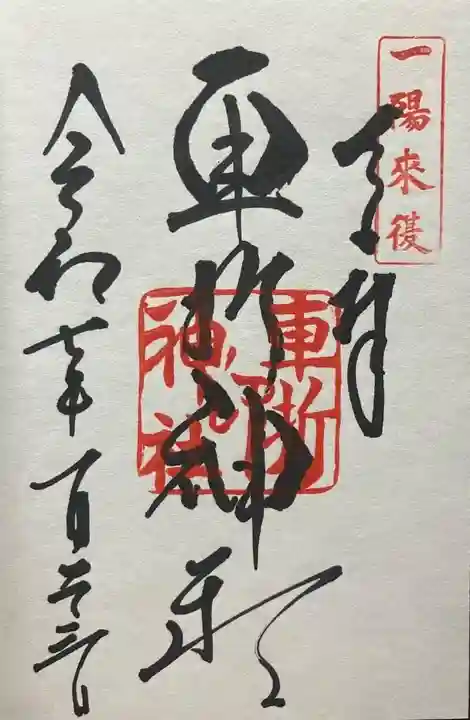 一陽來復
奉拝
車折神社
車折神社
令和七年一月二十三日